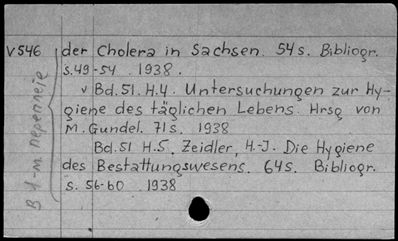 V546 der Cholera in Sachsen. 54s. Bibliogr.
s.49-54. 1938.
v Bd.51. H.4. Untersuchungen zur Hy-
giene des täglichen Lebens. Hrsg von
M. Gundel. 71s. 1938
Bd.51 H.5. Zeidler, H.-J. Die Hygiene
des Bestattungswesens. 64s. Bibliogr.
s. 56-60 1938
В 1-м переплете